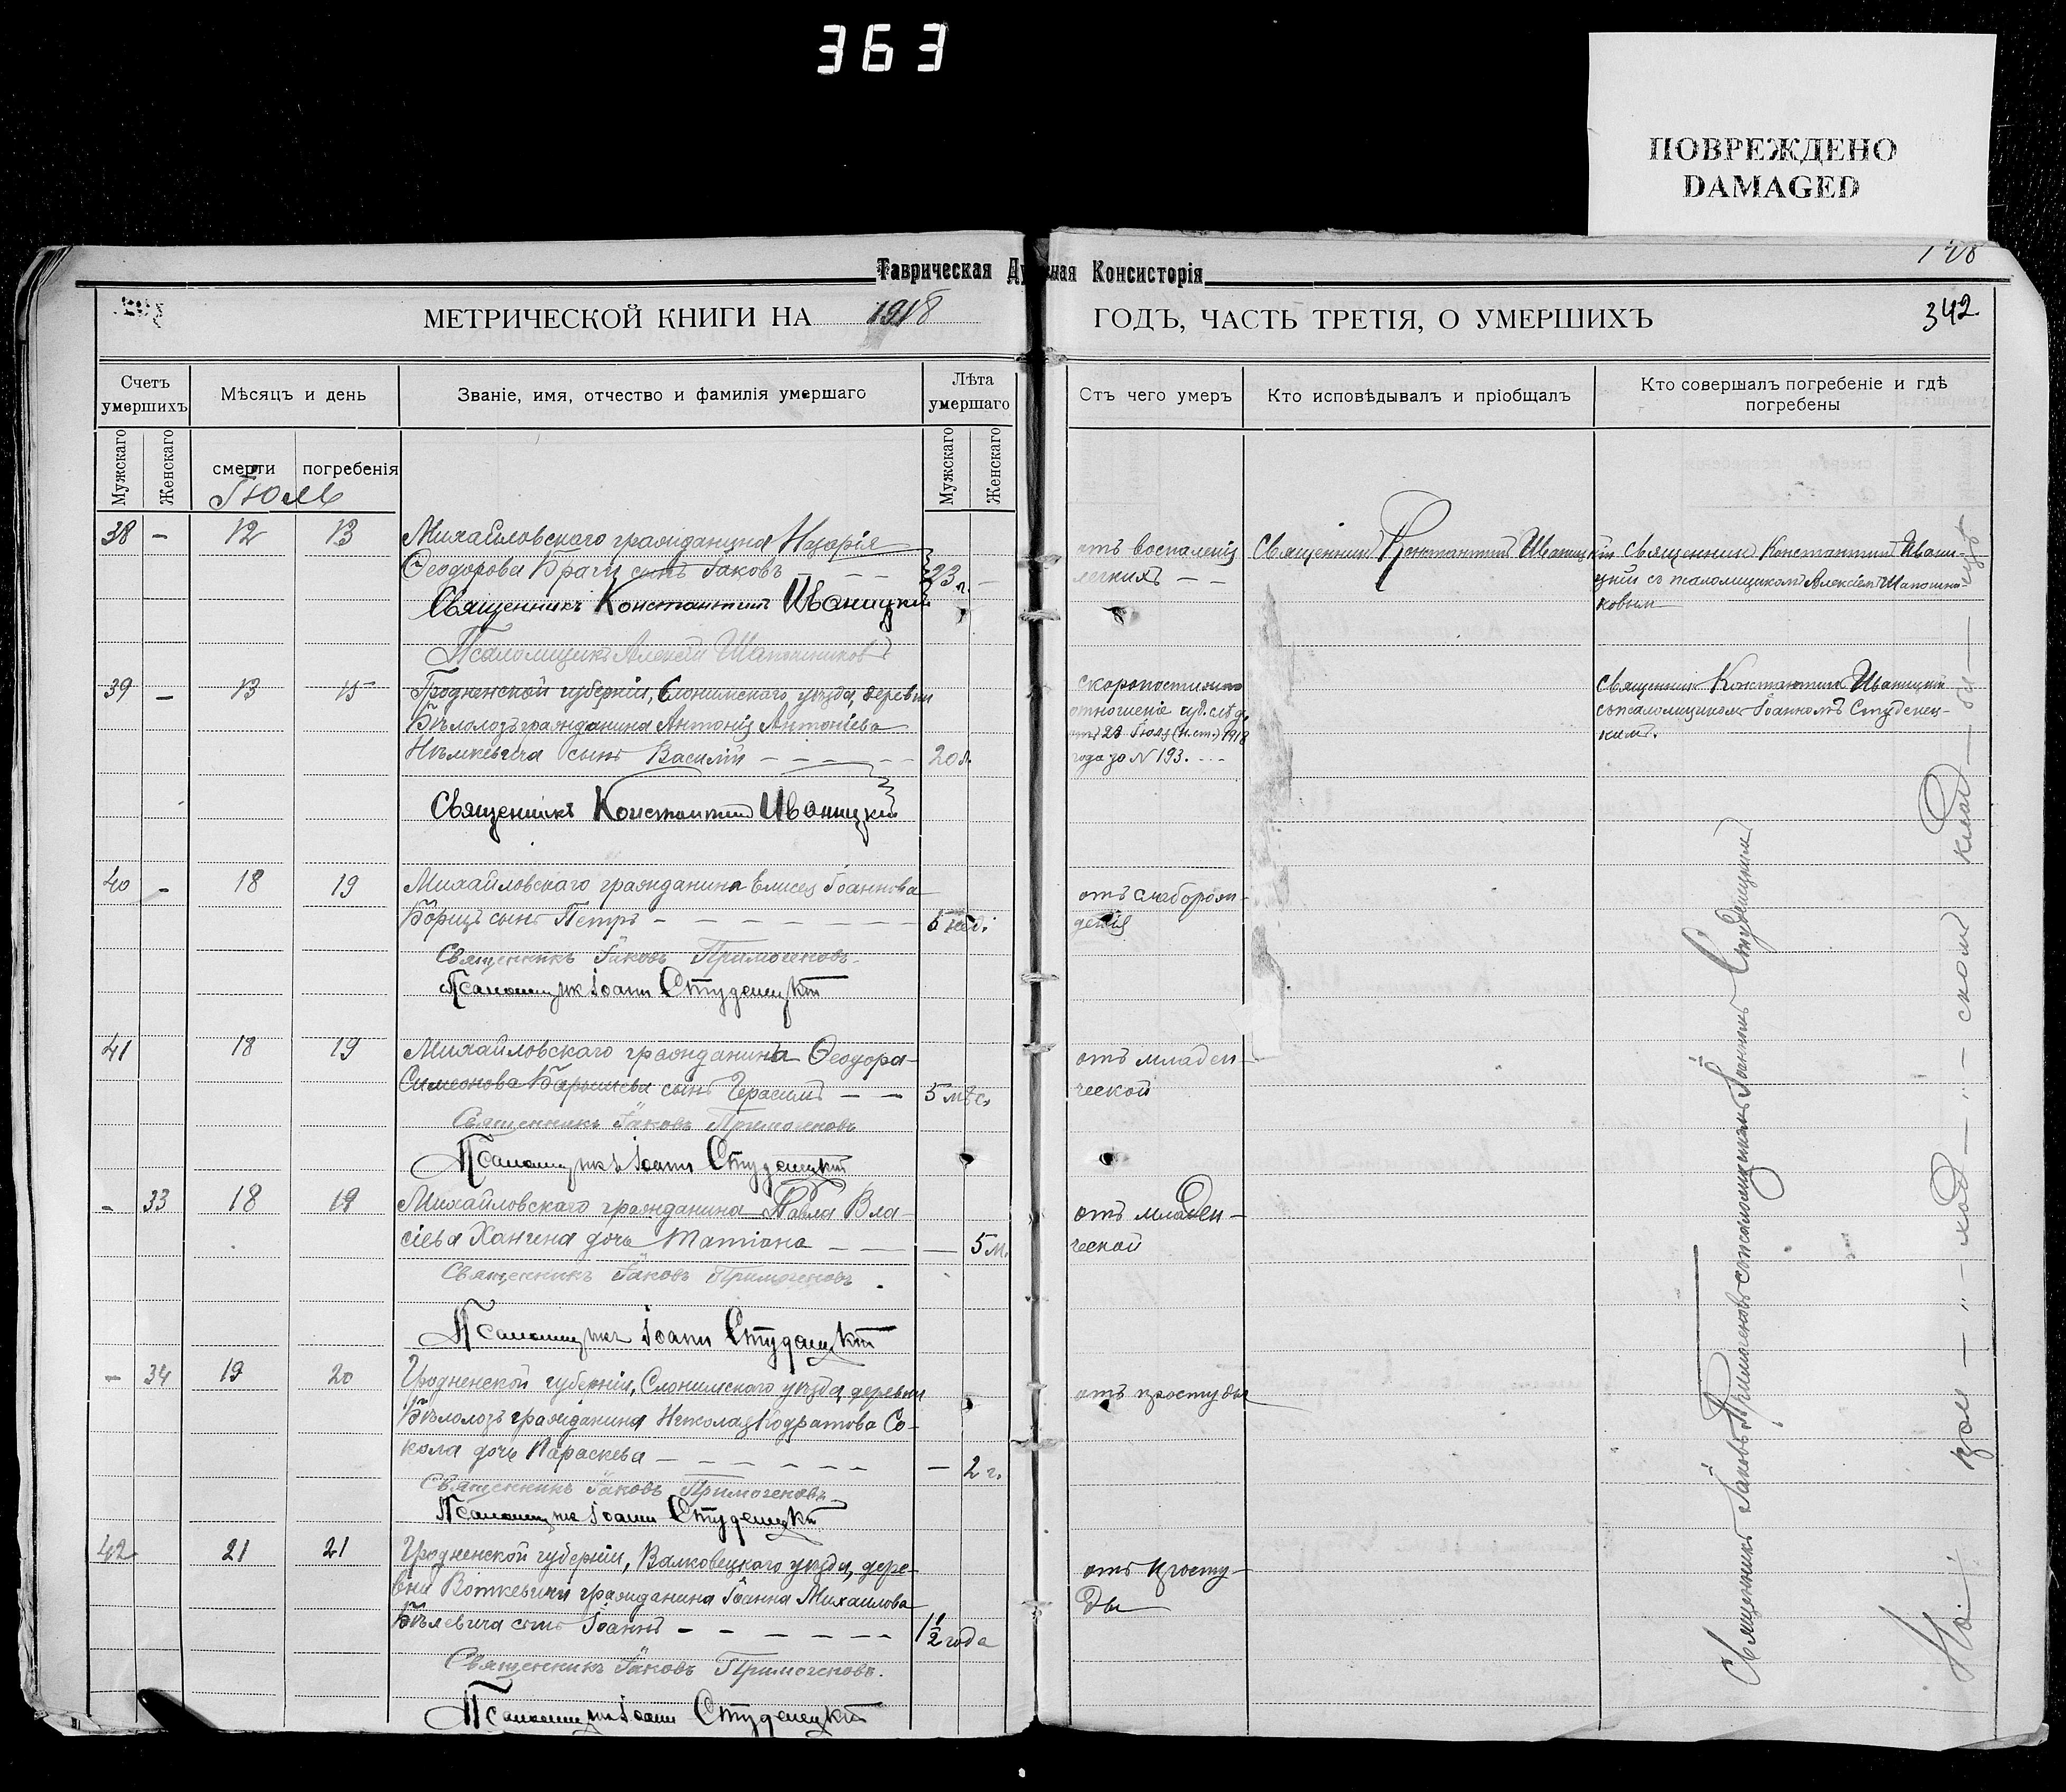 363
ПОВРЕЖДЕНО
DAMAGED
Таврическая Духовная Консисторія
МЕТРИЧЕСКОЙ КНИГИ НА 1918 ГОДЪ, ЧАСТЬ ТРЕТІЯ, О УМЕРШИХЪ
342
Счетъ умершихъ
Мѣсяцъ и день
Званіе, имя, отчество и фамилія умершаго
Лѣта умершаго
Отъ чего умеръ
Кто исповѣдывалъ и пріобщалъ
Кто совершалъ погребеніе и гдѣ погребены
Мужскаго
Женскаго
смерти
погребенія
Мужскаго
Женскаго
Іюль
38 – 12 13
Михайловскаго гражданина Назарія
Ѳеодорова Браги сынъ Іаковъ – – –
23 л.
Священникъ Константинъ Иваницкій
Псаломщикъ Алексій Шапошниковъ
отъ воспаленія
легкихъ – –
Священникъ Константинъ Иваницкій
Священникъ Константинъ Иваниц-
кій съ псаломщикомъ Алексіемъ Шапошни-
ковым
39 – 13 15
Гродненской губерніи, Слонимскаго уѣзда, деревни
Бѣлолозъ гражданина Антонія Антоніева
сынъ Василій – – – – –
20 л.
Священникъ Константинъ Иваницкій
скоропостижно
отношеніе суд. слѣд.
отъ 28 Іюля (н. ст.) 1918
года за N 193. – –
Священник Константинъ Иваницкій
съ псаломщикомъ Іоанномъ Студенец-
кимъ.
40 – 18 19
Михайловскаго гражданина Елисея Іоаннова
сынъ Петръ – – – – – – –
нед.
Священникъ Іаковъ Примогеновъ
Псаломщикъ Іоаннъ Студенецкій
отъ слаборож-
денія
41 18 19
Михайловскаго гражданина Ѳеодора
Симеонова сынъ Герасимъ – –
5 мѣс.
Священникъ Іаковъ Примогеновъ
Псаломщикъ Іоаннъ Студенецкій
отъ младен-
ческой
– 33 18 19
Михайловскаго гражданина Павла Вла-
сіева Хангена дочь Татіана – –
– 5 м.
Священникъ Іаковъ Примогеновъ
Псаломщикъ Іоаннъ Студенецкій
отъ младен-
ческой
– 34 19 20
Гродненской губерніи, Слонимскаго уѣзда, деревни
Бѣлолозъ гражданина Николая Кодратова Со-
кола дочь Параскева – – – – – –
– 2 г.
Священникъ Іаковъ Примогеновъ
Псаломщикъ Іоаннъ Студенецкій
отъ простуды
42 21 21
Гродненской губерніи, Валковецкаго уѣзда, дере-
вни гражданина Іоанна Михаилова
сынъ Іоаннъ – – – – – –
1 1/2 года
Священникъ Іаковъ Примогеновъ.
Псаломщикъ Іоаннъ Студенецкій
отъ просту-
ды
Священникъ Іаковъ Примогеновъ съ псаломщикомъ Іоанномъ Студенецкимъ
На